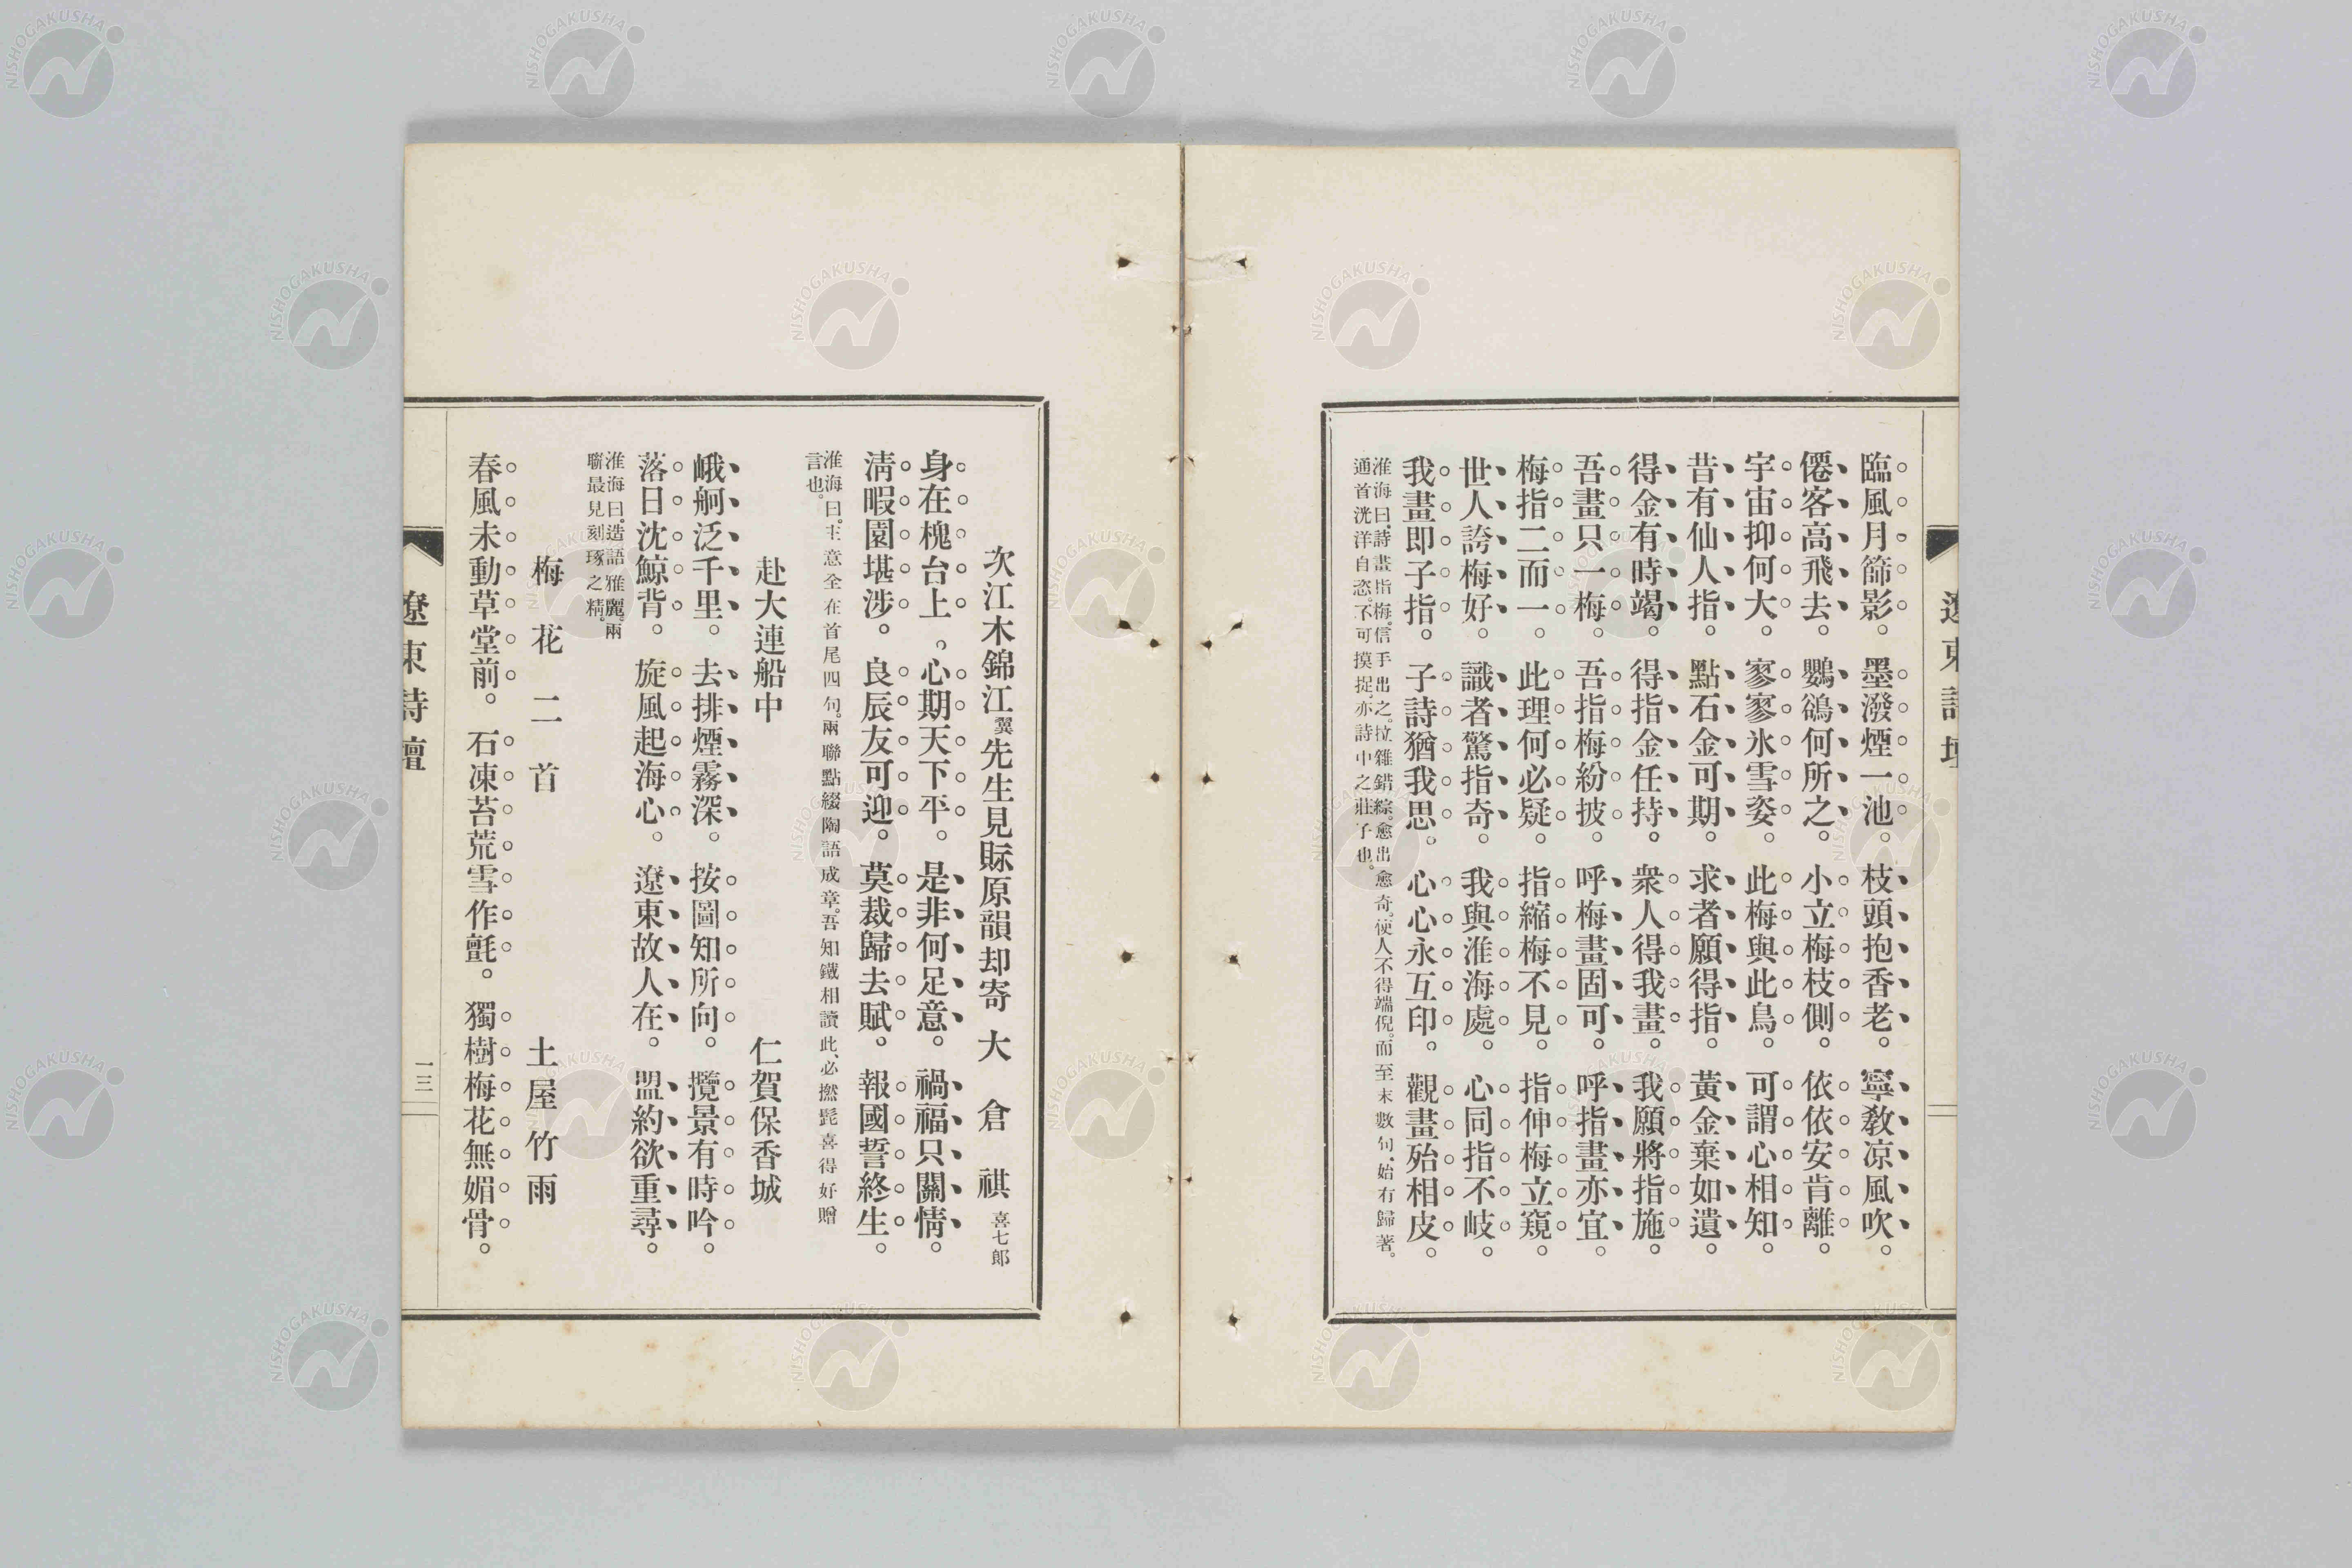 臨風月篩影。墨潑煙一池。枝頭抱香老。寧敎凉風吹。
僊客高飛去。鸚鵒何所之。小立梅枝側。依依安肯離。
宇宙抑何大。寥寥氷雪姿。此梅與此鳥。可謂心相知。
昔有仙人指。點石金可期。求者願得指。黃金棄如遺。
得金有時竭。得指金任持。衆人得我畫。我願將指施。
吾畫只一梅。吾指梅紛披。呼梅畫固可。呼指畫亦宜。
梅指二而一。此理何必疑。指縮梅不見。指伸梅立窺。
世人誇梅好。識者驚指奇。我與淮海處。心同指不岐。
我畫即子指。子詩猶我思。心心永互印。觀畫殆相皮。
淮海曰。詩畫指梅。信手出之。拉雜錯綜。愈出愈奇。使人不得端倪。而至末數句、始有歸著。
通首洸洋自恣。不可摸捉、亦詩中之莊子也。
遼東詩壇
次江木錦江翼先生見賑原韻却寄 大倉祺喜七郞
身在槐台上。心期天下平。是非何足意。禍福只關情。
淸暇園堪涉。良辰友可迎。莫裁歸去賦。報國誓終生。
淮海曰。主意全在首尾四句。兩聯點綴陶語成章。吾知鐵相讀此、必撚髭喜得好贈
言也。
赴大連船中 仁賀保香城
峨舸泛千里。去排煙霧深。按圖知所向。攬景有時吟。
落日沈鯨背。旋風起海心。遼東故人在。盟約欲重尋。
淮海曰。造語雅麗。兩
聯最見刻琢之精。
梅花二首 土屋竹雨
春風未動草堂前。石凍苔荒雪作氈。獨樹梅花無媚骨。
遼東詩壇
一三
NISHOGAKUSHA